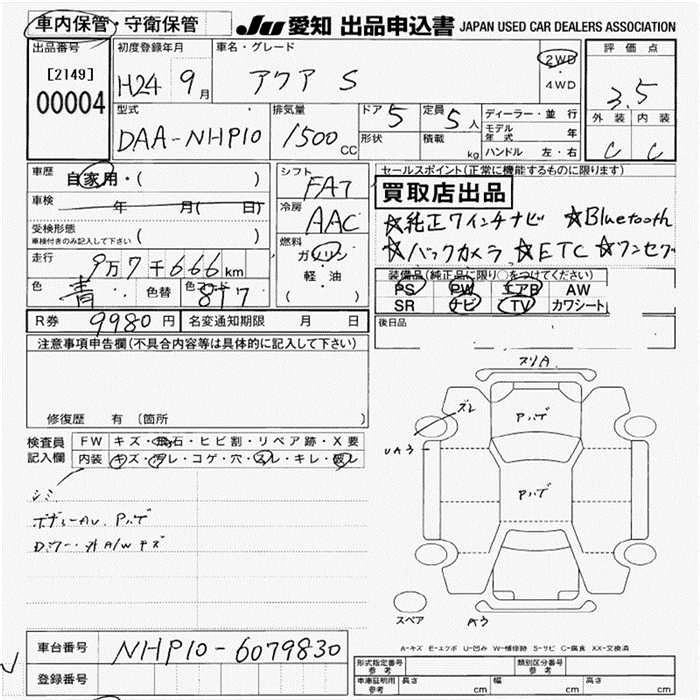 車内保管・守衛保管 JU 愛知 出品申込書 JAPAN USED CAR DEALERS ASSOCIATION
出品番号 初度登録年月 車名・グレード 評価点
[2149] H24 9月 アクア S 2WD・4WD 3.5
00004
型式 排気量 ドア 5 定員 5人 ディーラー・並行 外装 内装
DAA-NHP10 1500CC 形状 積載 kg モデル年式 年 C C
ハンドル 左・右
車歴 自家用・( ) シフト FAT セールスポイント(正常に機能するものに限ります)
車検 年 月( 日) 冷房 AAC 買取店出品
受検形態 車検付きのみ記入して下さい ( ) ☆純正ワインチナビ ☆Bluetooth
走行 9万7千666km 燃料 ガソリン・軽油 ( ) ☆バックカメラ ☆ETC ☆ワンセグ
色 青 色替 色コード 8T7 装備品(純正品に限り○をつけてください)
PS PW エアB AW
SR ナビ TV カワシート
R券 9980円 名変通知期限 月 日 後日品
注意事項申告欄(不具合内容等は具体的に記入して下さい)
修復歴 有 (箇所 )
検査員記入欄 FW キズ・飛石・ヒビ割・リペア跡・X要
内装 キズ・汚レ・コゲ・穴・スレ・キレ・破レ
シミ
ボディーAU. Pハゲ
Dミラー・外A/Wキズ
スリA
ズレ
Pハゲ
UAう
Pハゲ
スペア
Aう
A-キズ E-エクボ U-凹み W-補修跡 S-サビ C-腐食 XX-交換済
車台番号 NHP10-6079830
登録番号
形式指定番号 参考 類別区分番号 参考
車庫証明用 参考 長さ cm 幅 cm 高さ cm